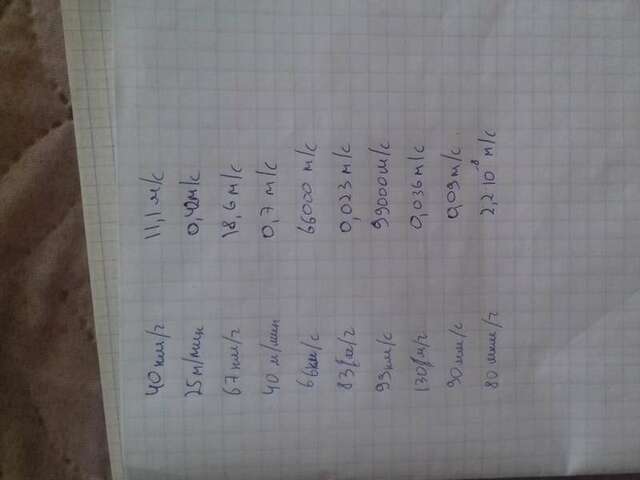 40 км/ч 11,1 м/с
25 м/мин 0,42 м/с
67 км/ч 18,6 м/с
40 м/мин 0,7 м/с
66 км/с 66000 м/с
83 м/ч 0,023 м/с
99 км/с 99000 м/с
130 м/ч 0,036 м/с
90 мм/с 0,09 м/с
80 мкм/ч 2,2 10⁻⁸ м/с